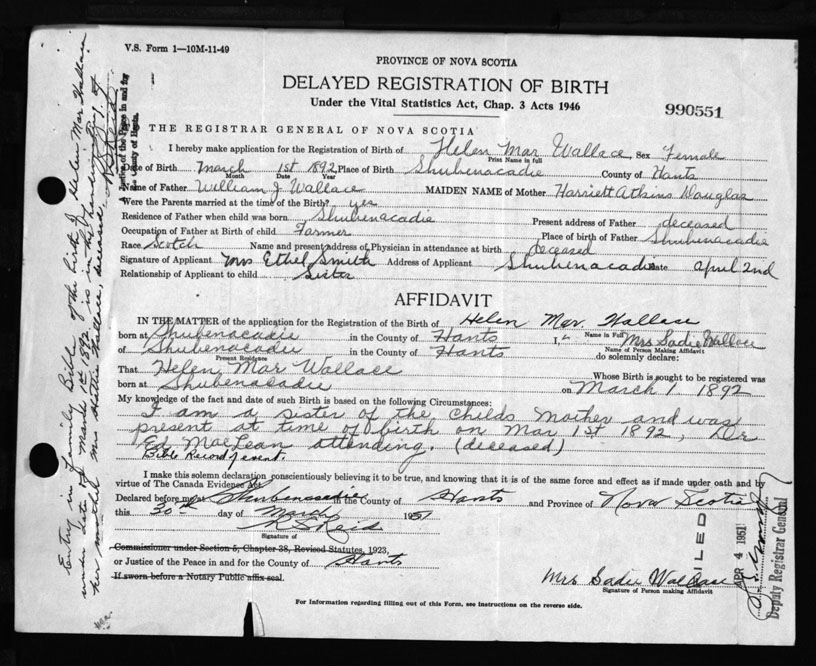 V.S. Form 1—10M-11-49
PROVINCE OF NOVA SCOTIA
DELAYED REGISTRATION OF BIRTH
Under the Vital Statistics Act, Chap. 3 Acts 1946
990551
THE REGISTRAR GENERAL OF NOVA SCOTIA
I hereby make application for the Registration of Birth of Helen Mar Wallace, Sex Female
Print Name in full
Date of Birth March 1st 1892 Place of Birth Shubenacadie County of Hants
Month Date Year
Name of Father William J Wallace MAIDEN NAME of Mother Harriett Atkins Douglas
Were the Parents married at the time of the Birth? yes
Residence of Father when child was born Shubenacadie Present address of Father deceased
Occupation of Father at Birth of child Farmer Place of birth of Father Shubenacadie
Race Scotch Name and present address of Physician in attendance at birth deceased
Signature of Applicant Mrs Ethel Smith Address of Applicant Shubenacadie Date April 2nd
Relationship of Applicant to child Sister
AFFIDAVIT
IN THE MATTER of the application for the Registration of the Birth of Helen Mar. Wallace
Name in Full
born at Shubenacadie in the County of Hants I, Mrs Sadie Wallace
Name of Person Making Affidavit
of Shubenacadie in the County of Hants do solemnly declare:
Present Residence
That Helen Mar Wallace Whose Birth is sought to be registered was
born at Shubenacadie on March 1 1892
My knowledge of the fact and date of such Birth is based on the following Circumstances:
I am a sister of the childs mother and was
present at time of birth on Mar 1st 1892, Dr
Ed MacLean attending. (deceased)
Bible Record of event.
I make this solemn declaration conscientiously believing it to be true, and knowing that it is of the same force and effect as if made under oath and by
virtue of The Canada Evidence Act.
Declared before me at Shubenacadie in the County of Hants and Province of Nova Scotia
this 30th day of March 1951
R S Reid
Signature of
Commissioner under Section 5, Chapter 38, Revised Statutes, 1923,
or Justice of the Peace in and for the County of Hants
If sworn before a Notary Public affix seal.
Mrs Sadie Wallace
Signature of Person making Affidavit
For Information regarding filling out of this Form, see instructions on the reverse side.
FILED
APR 4 1951
Deputy Registrar General
Entry in Family Bible of the birth of Helen Mar Wallace
under date of March 1st 1892 is in the handwriting of
her mother Mrs Hattie Wallace, deceased,
R S Reid
Justice of the Peace in and for
the County of Hants.